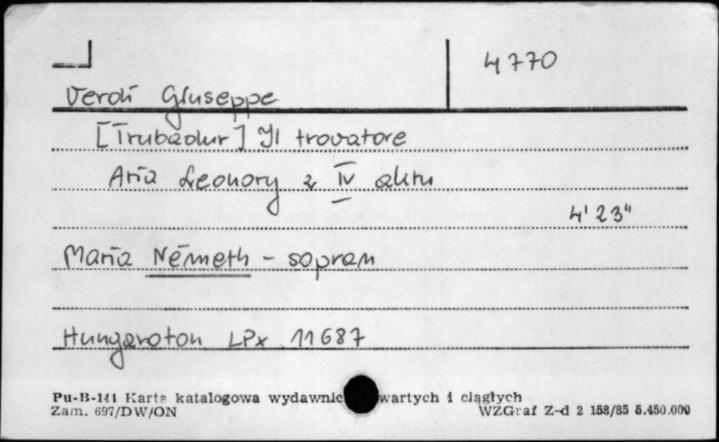 4770
Verdi Giuseppe
[Trubadur] Il trovatore
Aria Leonory z IV aktu
4'23"
Maria Németh - sopran
Hungaroton LPx 11687
Pu-B-141 Karta katalogowa wydawnic wartych i ciągłych
Zam. 697/DW/ON WZGraf Z-d 2 158/85 5.450.000